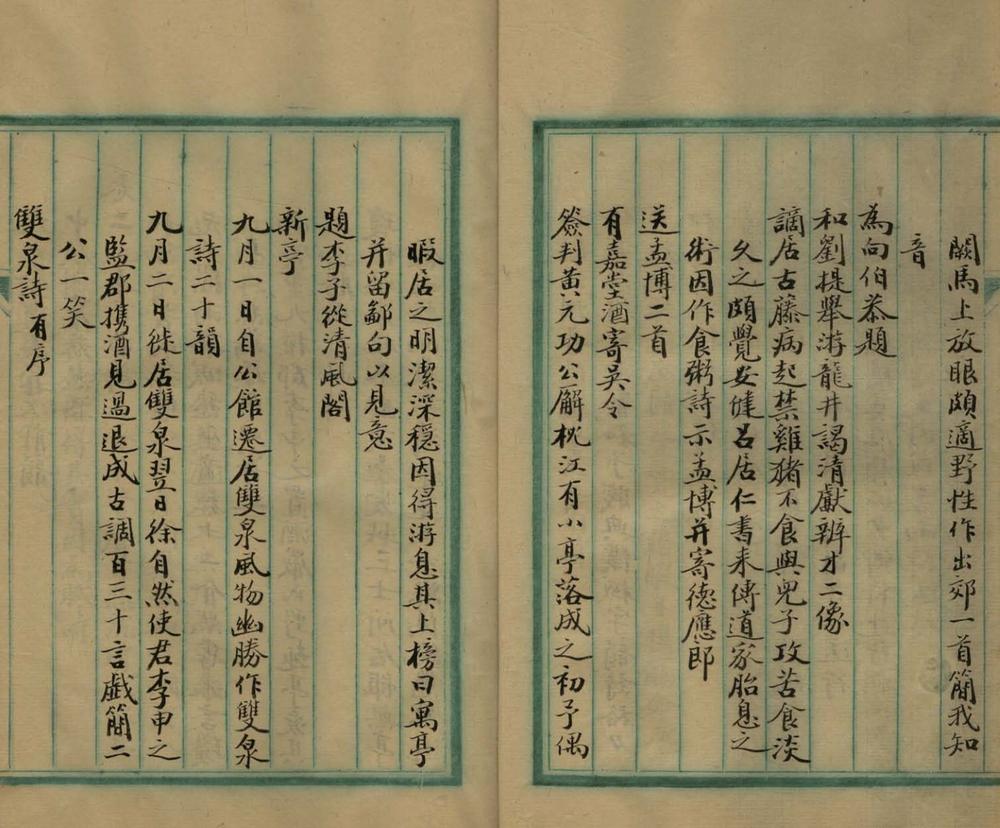 闕馬上放眼頗適野性作出郊一首簡我知
音
為向伯恭題
和劉提舉游龍井謁清獻辨才二像
謫居古藤病起禁雞豬不食與兒子攻苦食淡
久之頗覺安健呂居仁書来傳道家胎息之
術因作食粥詩示孟博并寄德應郎
送孟博二首
有嘉堂酒寄吳令
簽判黃元功公廨枕江有小亭落成之初予偶
暇居之明潔深穩因得游息其上榜曰寓亭
并留鄙句以見意
題李子從清風閣
新亭
九月一日自公館遷居雙泉風物幽勝作雙泉
詩二十韻
九月二日徙居雙泉翌日徐自然使君李申之
監郡携酒見過退成古調百三十言戯簡二
公一笑
雙泉詩有序